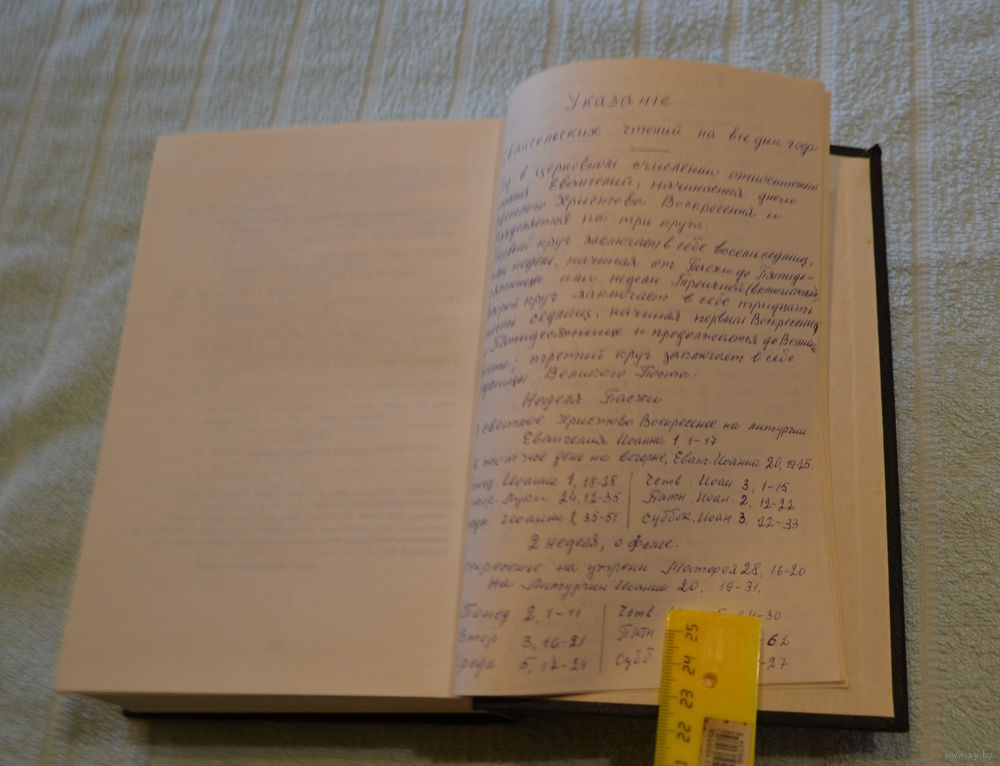 Указанiе
Евангельских чтений на все дни года
в церковном счислении относительно
Евангелий, начинается днем
Христова Воскресения и
разделяется на три круга.
Первый круг заключает в себе восемь седмиц,
недель, начиная от Пасхи до Пятиде-
или недели Троичной (включительно),
второй круг заключает в себе тридцать
шесть седмиц, начиная первым Воскресением
Пятидесятнице и продолжается до Велик.
третий круг заключает в себе
седмицы Великого Поста.
Неделя Пасхи
светлое Христово Воскресение на литургии
Евангелия Иоанна 1, 1-17
в тот же день на вечерне, Еванг. Иоанна 20, 19-25.
понед. Иоанна 1, 18-28 Четв. Иоан. 3, 1-15
втор. Луки 24, 12-35 Пятн. Иоан. 2, 12-22
среда Иоанна 1, 35-51 Суббот. Иоан 3. 22-33
2 неделя, о Фоме.
Воскресенье на утрени Матфея 28, 16-20
На Литургии Иоанна 20, 19-31.
Понед 2, 1-11 Четв 5, 24-30
Втор 3, 16-21 Пятн
среда 5, 17-24 Субб. -27
25
24
23
22
www.ay.by